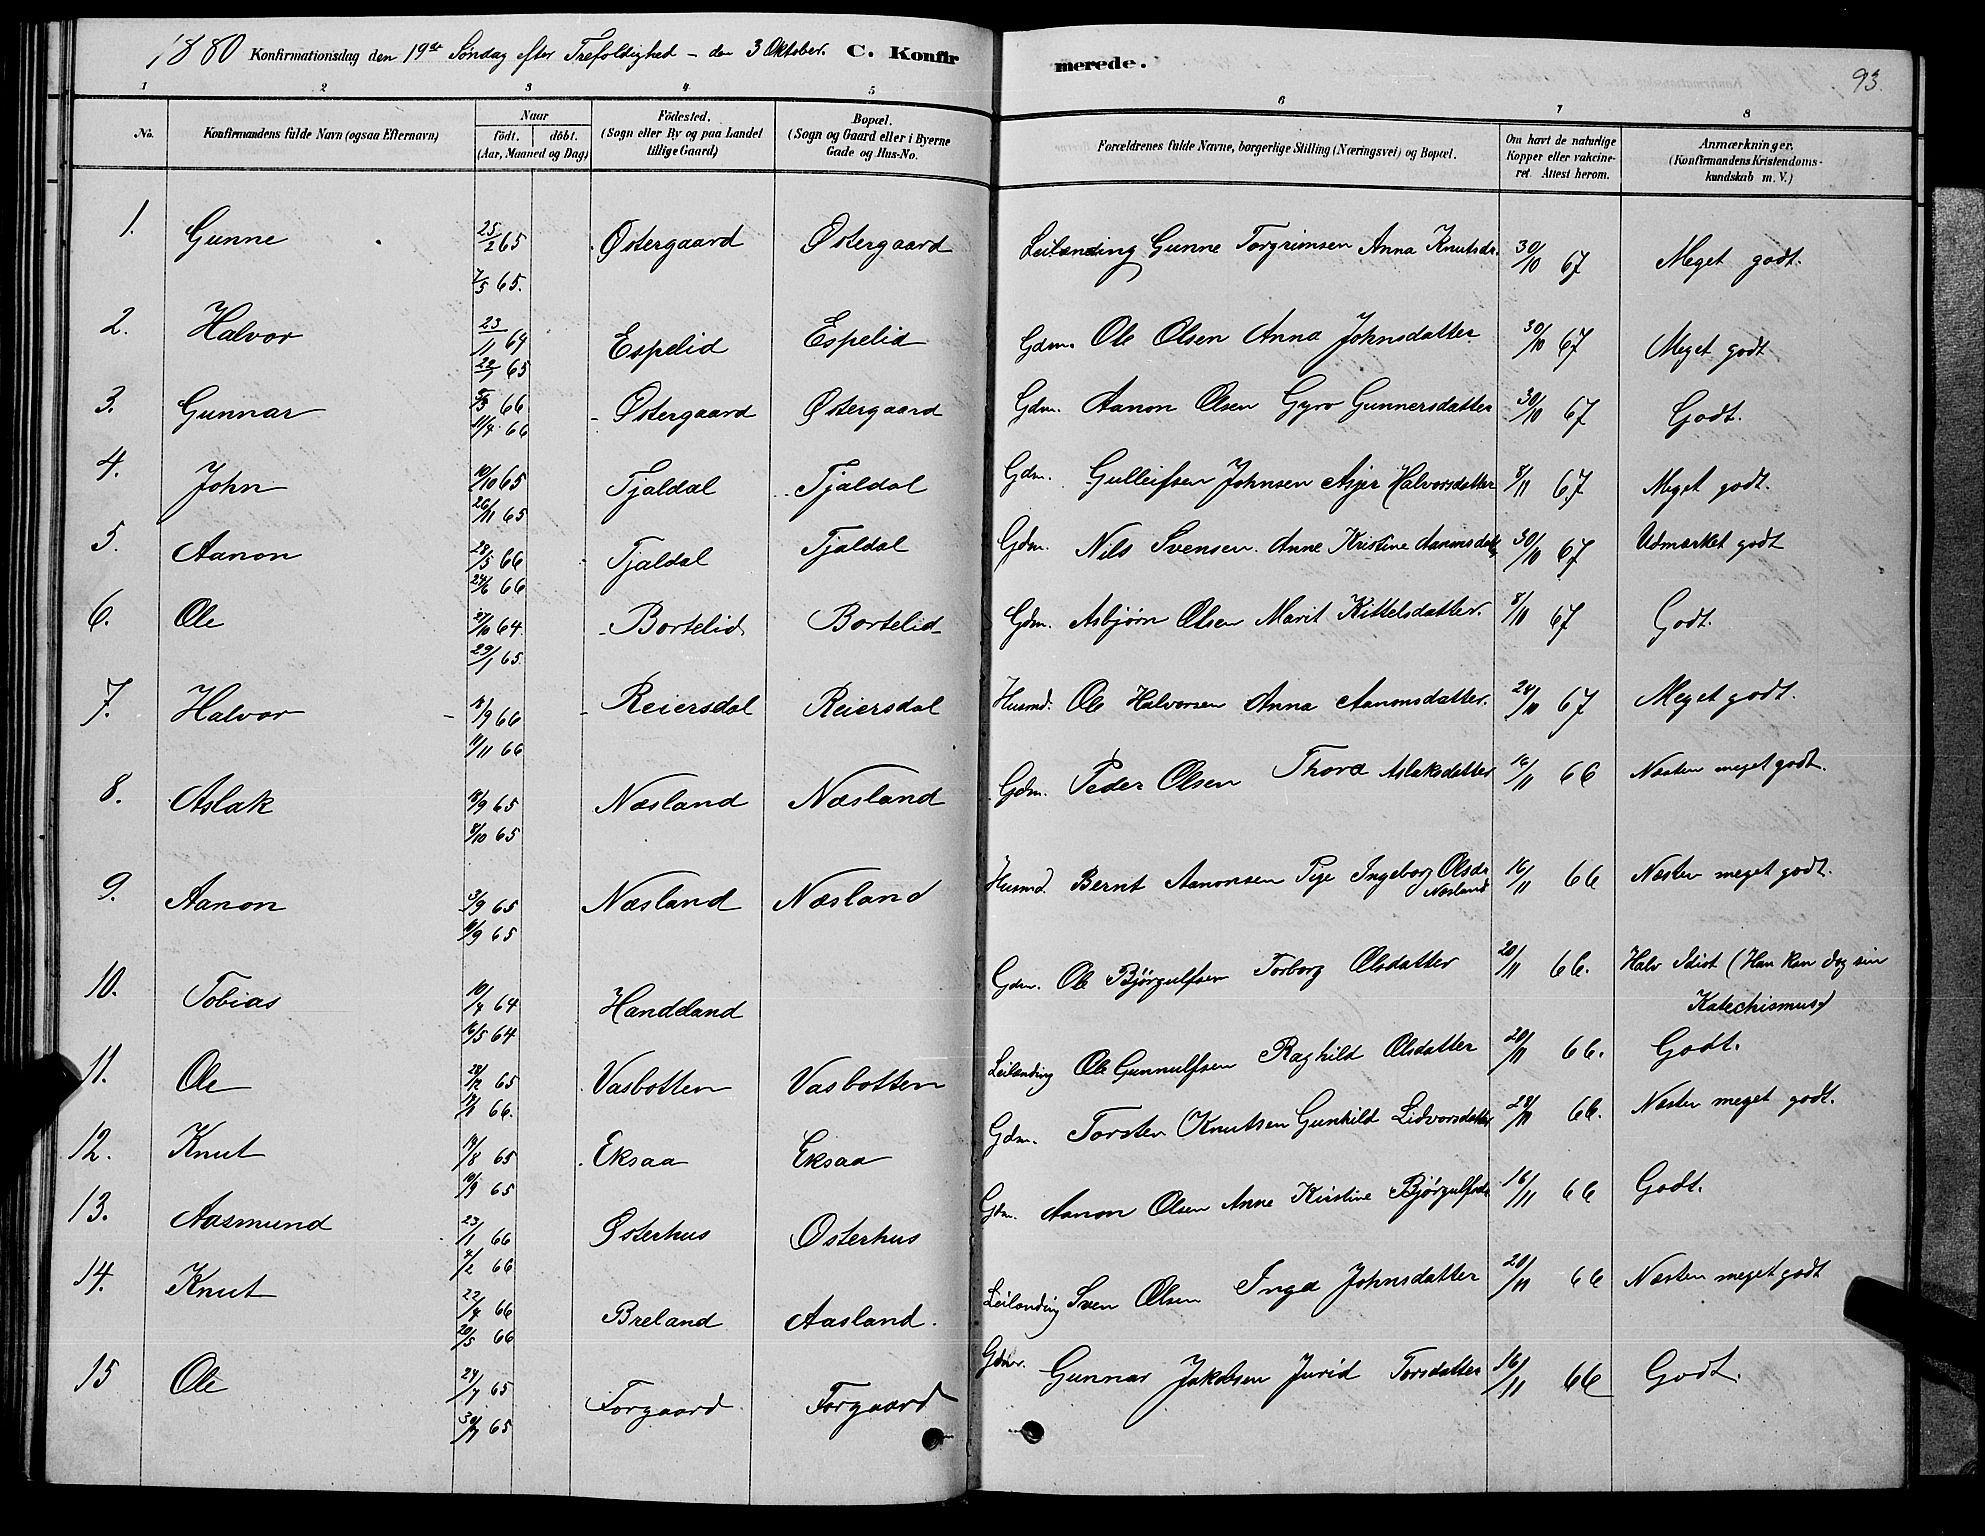 1880 Konfirmationsdag den 19de Søndag efter Trefoldighed - den 3 Oktober. C. Konfirmerede. 93.
1 2 3 4 5 6 7 8
No. Konfirmandens fulde Navn (ogsaa Efternavn) Naar födt. döbt. (Aar, Maaned og Dag) Födested. (Sogn eller By og paa Landet tillige Gaard) Bopæl. (Sogn og Gaard eller i Byerne Gade og Hus-No. Forældrenes fulde Navne, borgerlige Stilling (Næringsvei) og Bopæl. Om havt de naturlige Kopper eller vakcineret Attest herom. Anmærkninger. (Konfirmandens Kristendomskundskab m. V.)
1. Gunne 25/2 65 7/5 65. Østergaard Østergaard Leilænding Gunne Torgrimsen Anna Knutsdr. 30/10 67 Meget godt.
2. Halvor 23/11 64 22/1 65 Espelid Espelid Gdm. Ole Olsen Anna Johnsdatter 30/10 67 Meget godt
3. Gunnar 5/3 66 11/4 66 Østergaard Østergaard Gdm. Aanon Olsen Gyro Gunnersdatter 30/10 67 Godt.
4. John 10/10 65 26/11 65 Tjaldal Tjaldal Gdm. Gulleifsen Johnsen Asjer Halvorsdatter 8/11 67 Meget godt.
5. Aanon 28/5 66 24/6 66 Tjaldal Tjaldal Gdm. Nils Svensen. Anne Kristine Aanonsdatt 30/10 67 Udmærket godt
6. Ole 27/10 64 29/1 65. Bortelid Bortelid Gdm. Asbjørn Olsen Marit Kittelsdatter. 8/11 67 Godt.
7. Halvor 18/9 66 11/11 66 Reiersdal Reiersdal Husmd. Ole Halvorsen Anna Aanonsdatter. 24/10 67 Meget godt.
8. Aslak 18/9 65 8/10 65 Næsland Næsland Gdm. Peder Olsen Thora Aslaksdatter 16/11 66 Næsten meget godt.
9. Aanon 3/9 65 11/9 65 Næsland Næsland Husmd. Bernt Aanonsen Pige Ingeborg Olsdr Næsland 16/11 66 Næsten meget godt.
10. Tobias 10/4 64 16/5 64 Handeland Gdm. Ole Bjørgulfsen Torborg Olsdatter 20/11 66. Halv Idiot (Han kan dog sin Katechismus)
11. Ole 28/12 65 66. Vasbotten Vasbotten Leilænding Ole Gunnulfsen Raghild Olsdatter 20/11 66. Godt.
12. Knut 19/8 65 10/9 65 Eksaa Eksaa Gdm. Torsten Knutsen Gunhild Lidvorsdatter 28/11 66. Næsten meget godt.
13. Aasmund 23/1 66 4/2 66 Østerhus Osterhus Gdm. Aanon Olsen Anne Kristine Bjørgulfsdr 16/11 66 Godt.
14. Knut 22/4 66 20/5 66 Breland Aasland. Leilænding Sven Olsen Inga Johnsdatter 20/11 66 Næsten meget godt
15 Ole 24/7 65 30/7 65 Forgaard Forgaard Gdm. Gunnar Jakobsen Jurid Torsdatter 16/11 66 Godt.